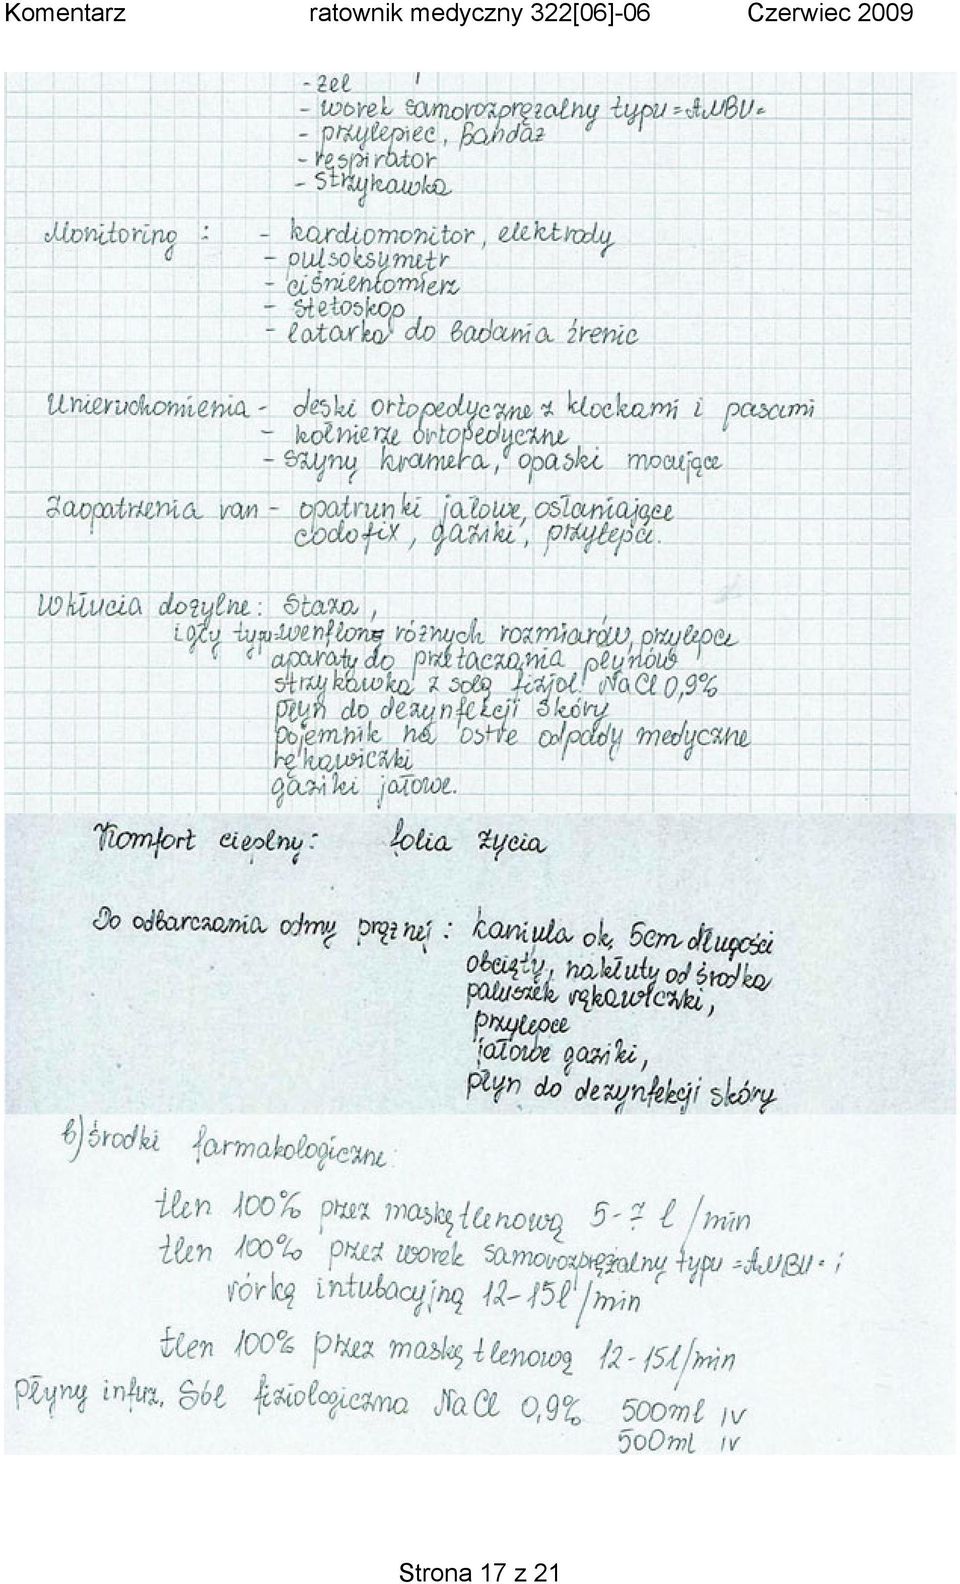 Komentarz ratownik medyczny 322[06]-06 Czerwiec 2009
- żel
- worek samorozprężalny typu "AMBU"
- przylepiec, bandaż
- respirator
- strzykawka
Monitoring : - kardiomonitor, elektrody
- pulsoksymetr
- ciśnieniomierz
- stetoskop
- latarka do badania źrenic
Unieruchomienia - deski ortopedyczne z klockami i pasami
- kołnierze ortopedyczne
- szyny kramera, opaski mocujące
Zaopatrzenia ran - opatrunki jałowe, osłaniające
codofix, gaziki, przylepci.
Wkłucia dożylne: Staza,
igły typu "wenflon" różnych rozmiarów, przylepce
aparaty do przetaczania płynów
strzykawka z solą fizjol. NaCl 0,9%
płyn do dezynfekcji skóry
pojemnik na ostre odpady medyczne
rękawiczki
gaziki jałowe.
Komfort cieplny: folia życia
Do odbarczania odmy prężnej : kaniula ok. 5cm długości
obcięty, nakłuty od środka
paluszek rękawiczki,
przylepce
jałowe gaziki,
płyn do dezynfekcji skóry
b) środki farmakologiczne:
tlen 100% przez maskę tlenową 5-7 l /min
tlen 100% przez worek samorozprężalny typu "AMBU" i
rórkę intubacyjną 12-15l /min
tlen 100% przez maskę tlenową 12-15l/min
Płyny infuz. Sól fizjologiczna NaCl 0,9% 500ml iv
500ml iv
Strona 17 z 21